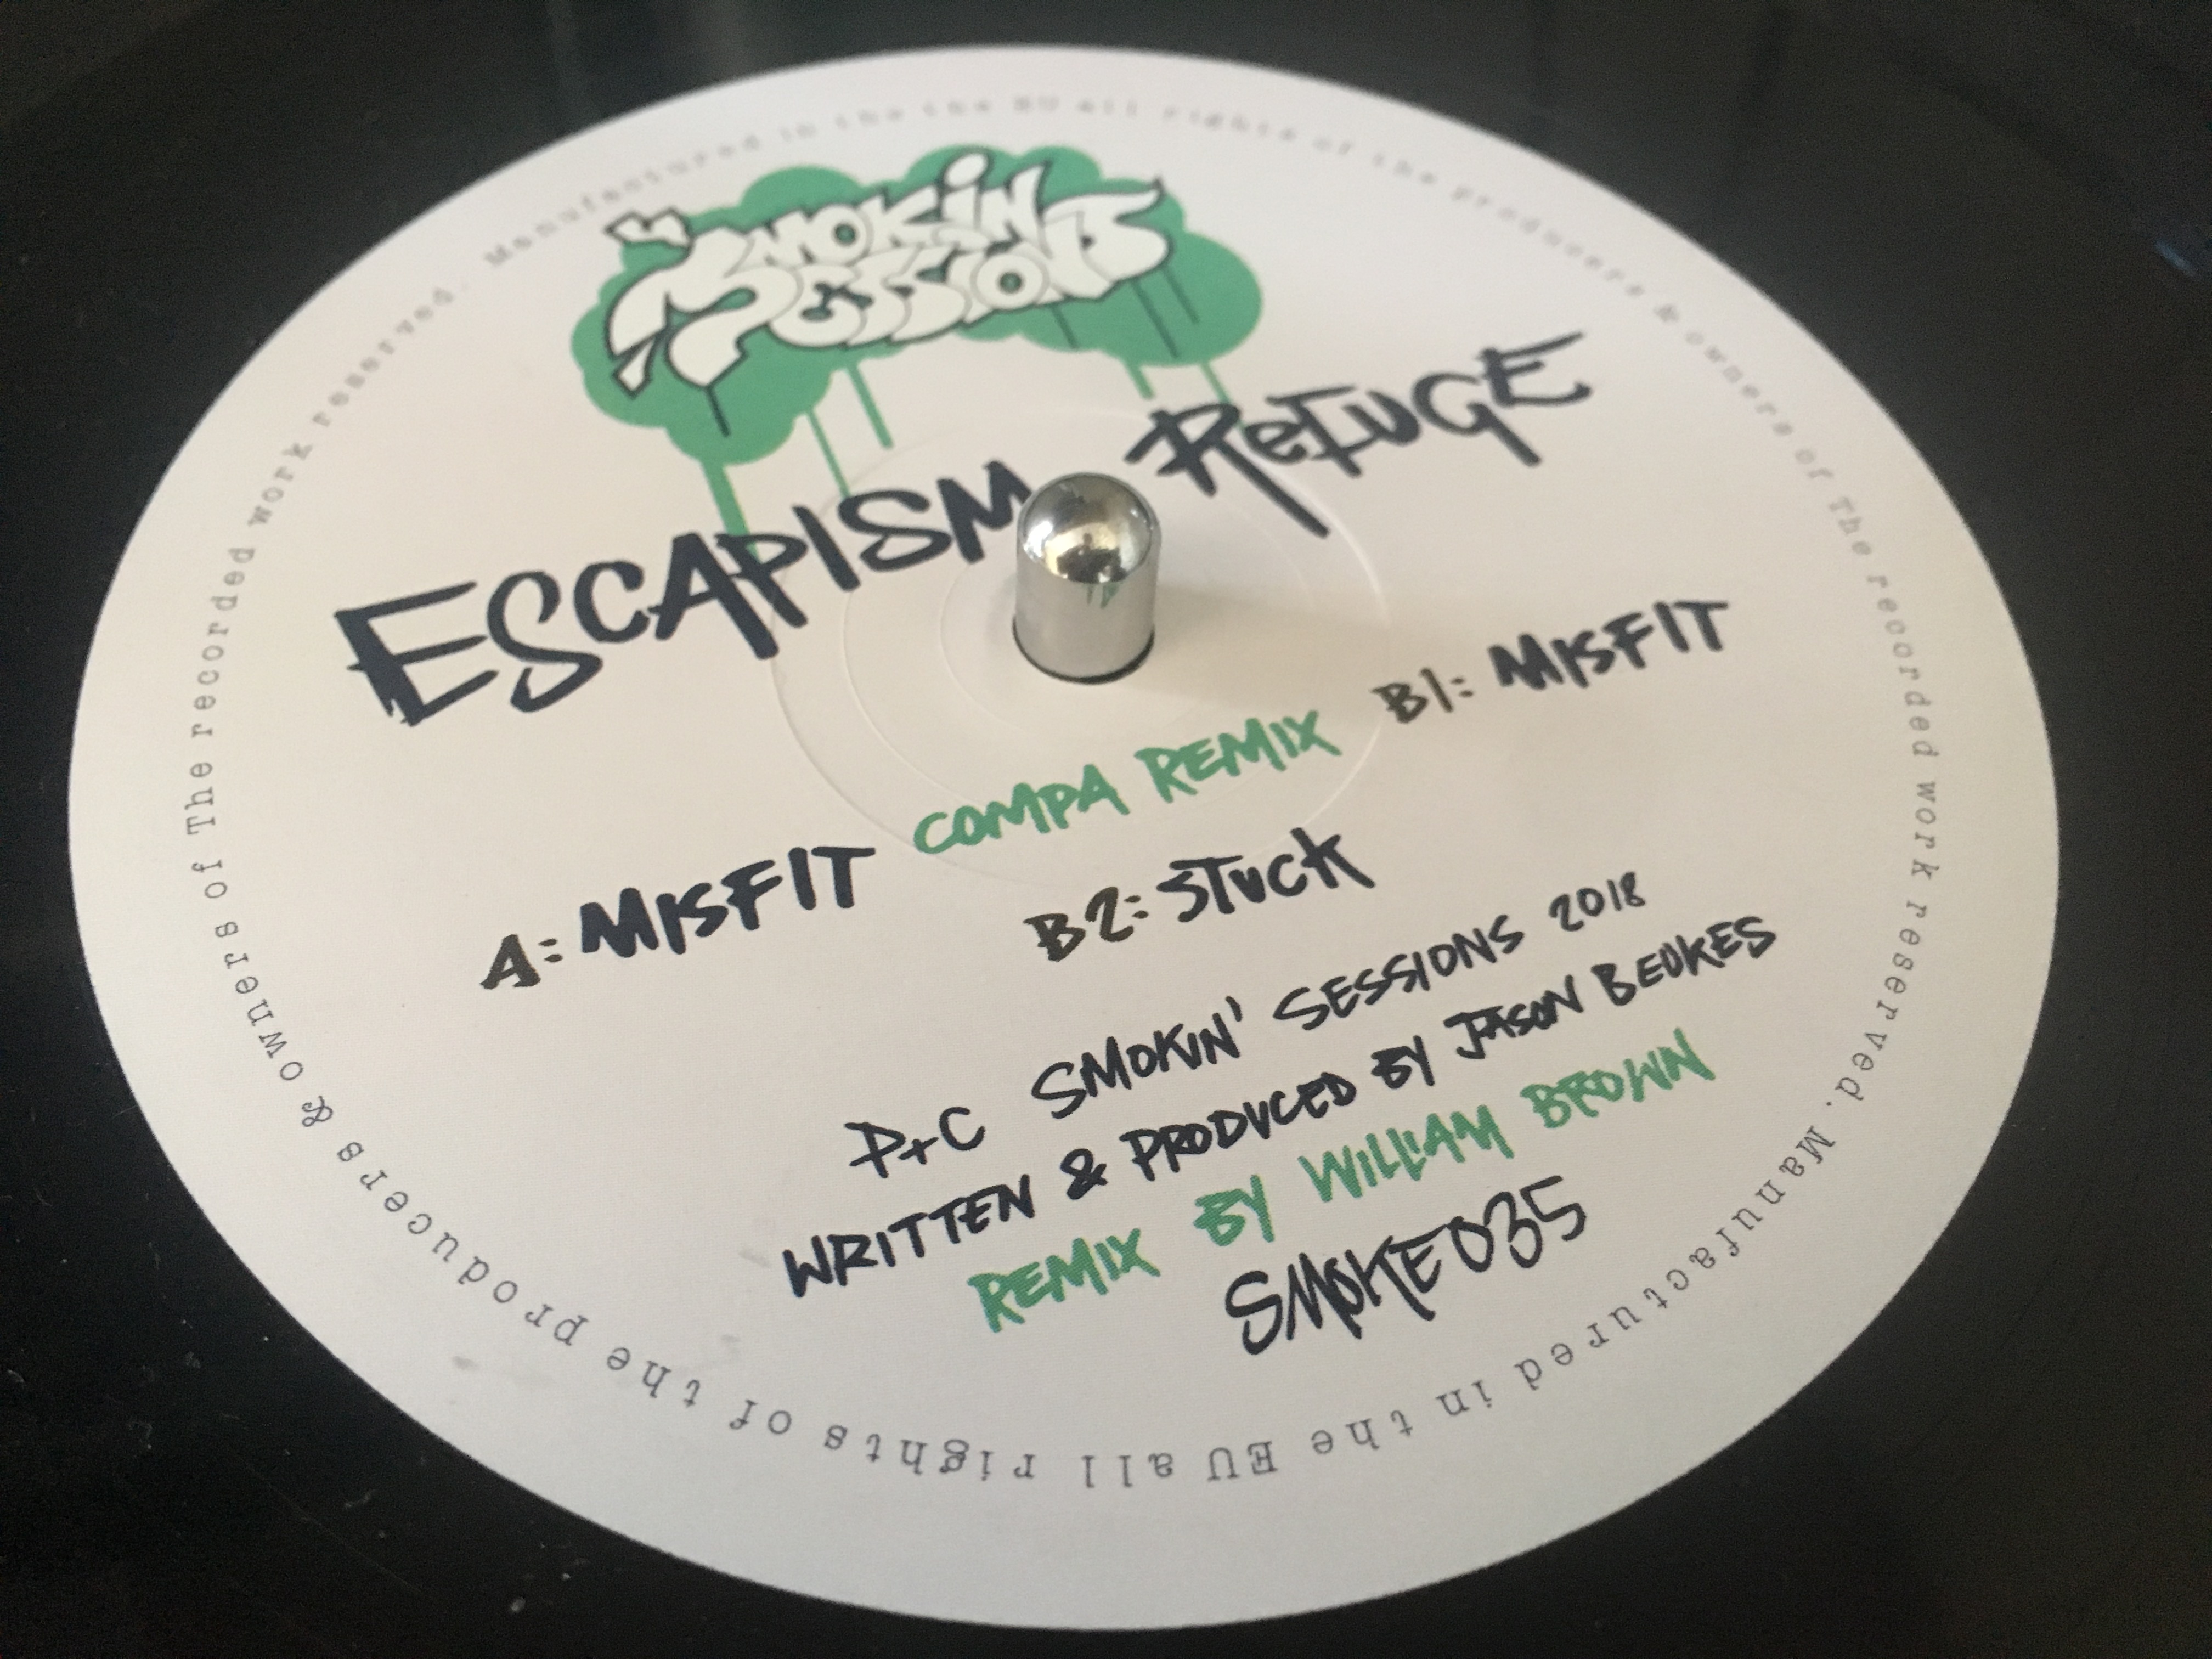 SMOKIN
SESSIONS
ESCAPISM REFUGE
A: MISFIT COMPA REMIX B1: MISFIT
B2: STUCK
P+C SMOKIN' SESSIONS 2018
WRITTEN & PRODUCED BY JASON BEUKES
REMIX BY WILLIAM BROWN
SMOKE035
Manufactured in the the EU all rights of the producers & owners of The recorded work reserved. Manufactured in the EU all rights of the producers & owners of The recorded work reserved.